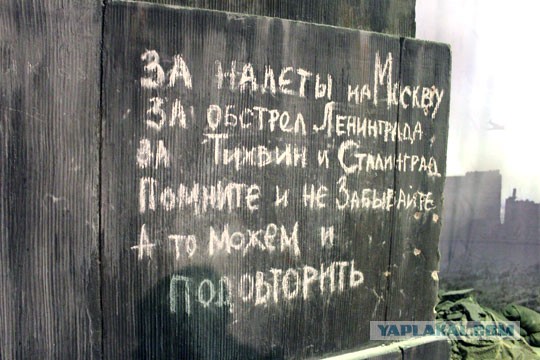 За налёты на Москву
За обстрел Ленинграда,
За Тихвин и Сталинград
Помните и не забывайте
А то можем и
подовторить
YAPLAKAL.COM